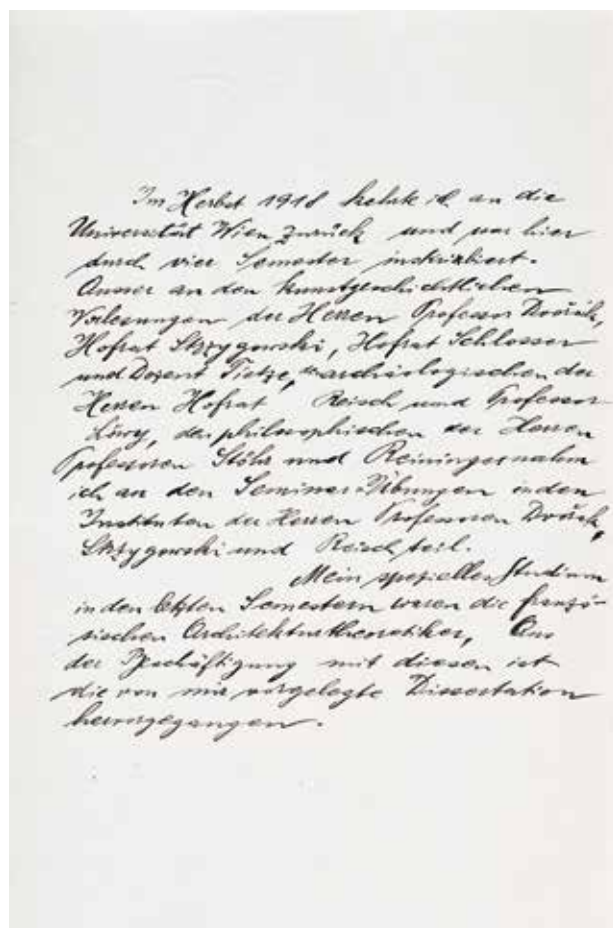 Im Herbst 1918 kehrte ich an die
Universität Wien zurück und war hier
durch vier Semester inskribiert.
Ausser an den kunstgeschichtlichen
Vorlesungen der Herren Professor Dvořák,
Hofrat Strzygowski, Hofrat Schlosser
und Dozent Tietze, archäologischen der
Herren Hofrat Reisch und Professor
Löwy, den philosophischen der Herren
Professoren Stöhr und Reininger nahm
ich an den Seminar-Übungen in den
Instituten der Herren Professoren Dvořák,
Strzygowski und Reisch teil.
Mein spezielles Studium
in den letzten Semestern waren die franzö-
sischen Architekturtheoretiker, Aus
der Beschäftigung mit diesen ist
die von mir vorgelegte Dissertation
hervorgegangen.